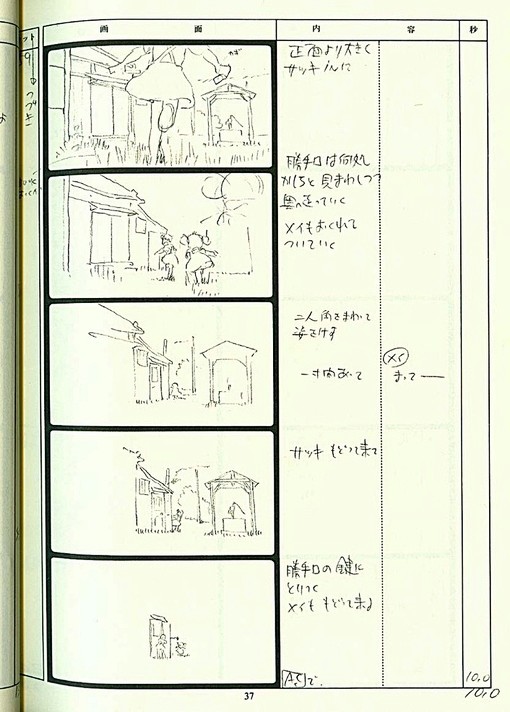 画面
内容
秒
正面より大きく
サツキinに
勝手口は何処
かしらと見まわしつつ
奥へ走っていく
メイもおくれて
ついていく
二人角をまわって
姿をけす
一寸内あって
メイ
まって――
サツキ もどって来て
勝手口の鍵に
とりつく
メイも もどって来る
A.C.で
10.0
10.0
37